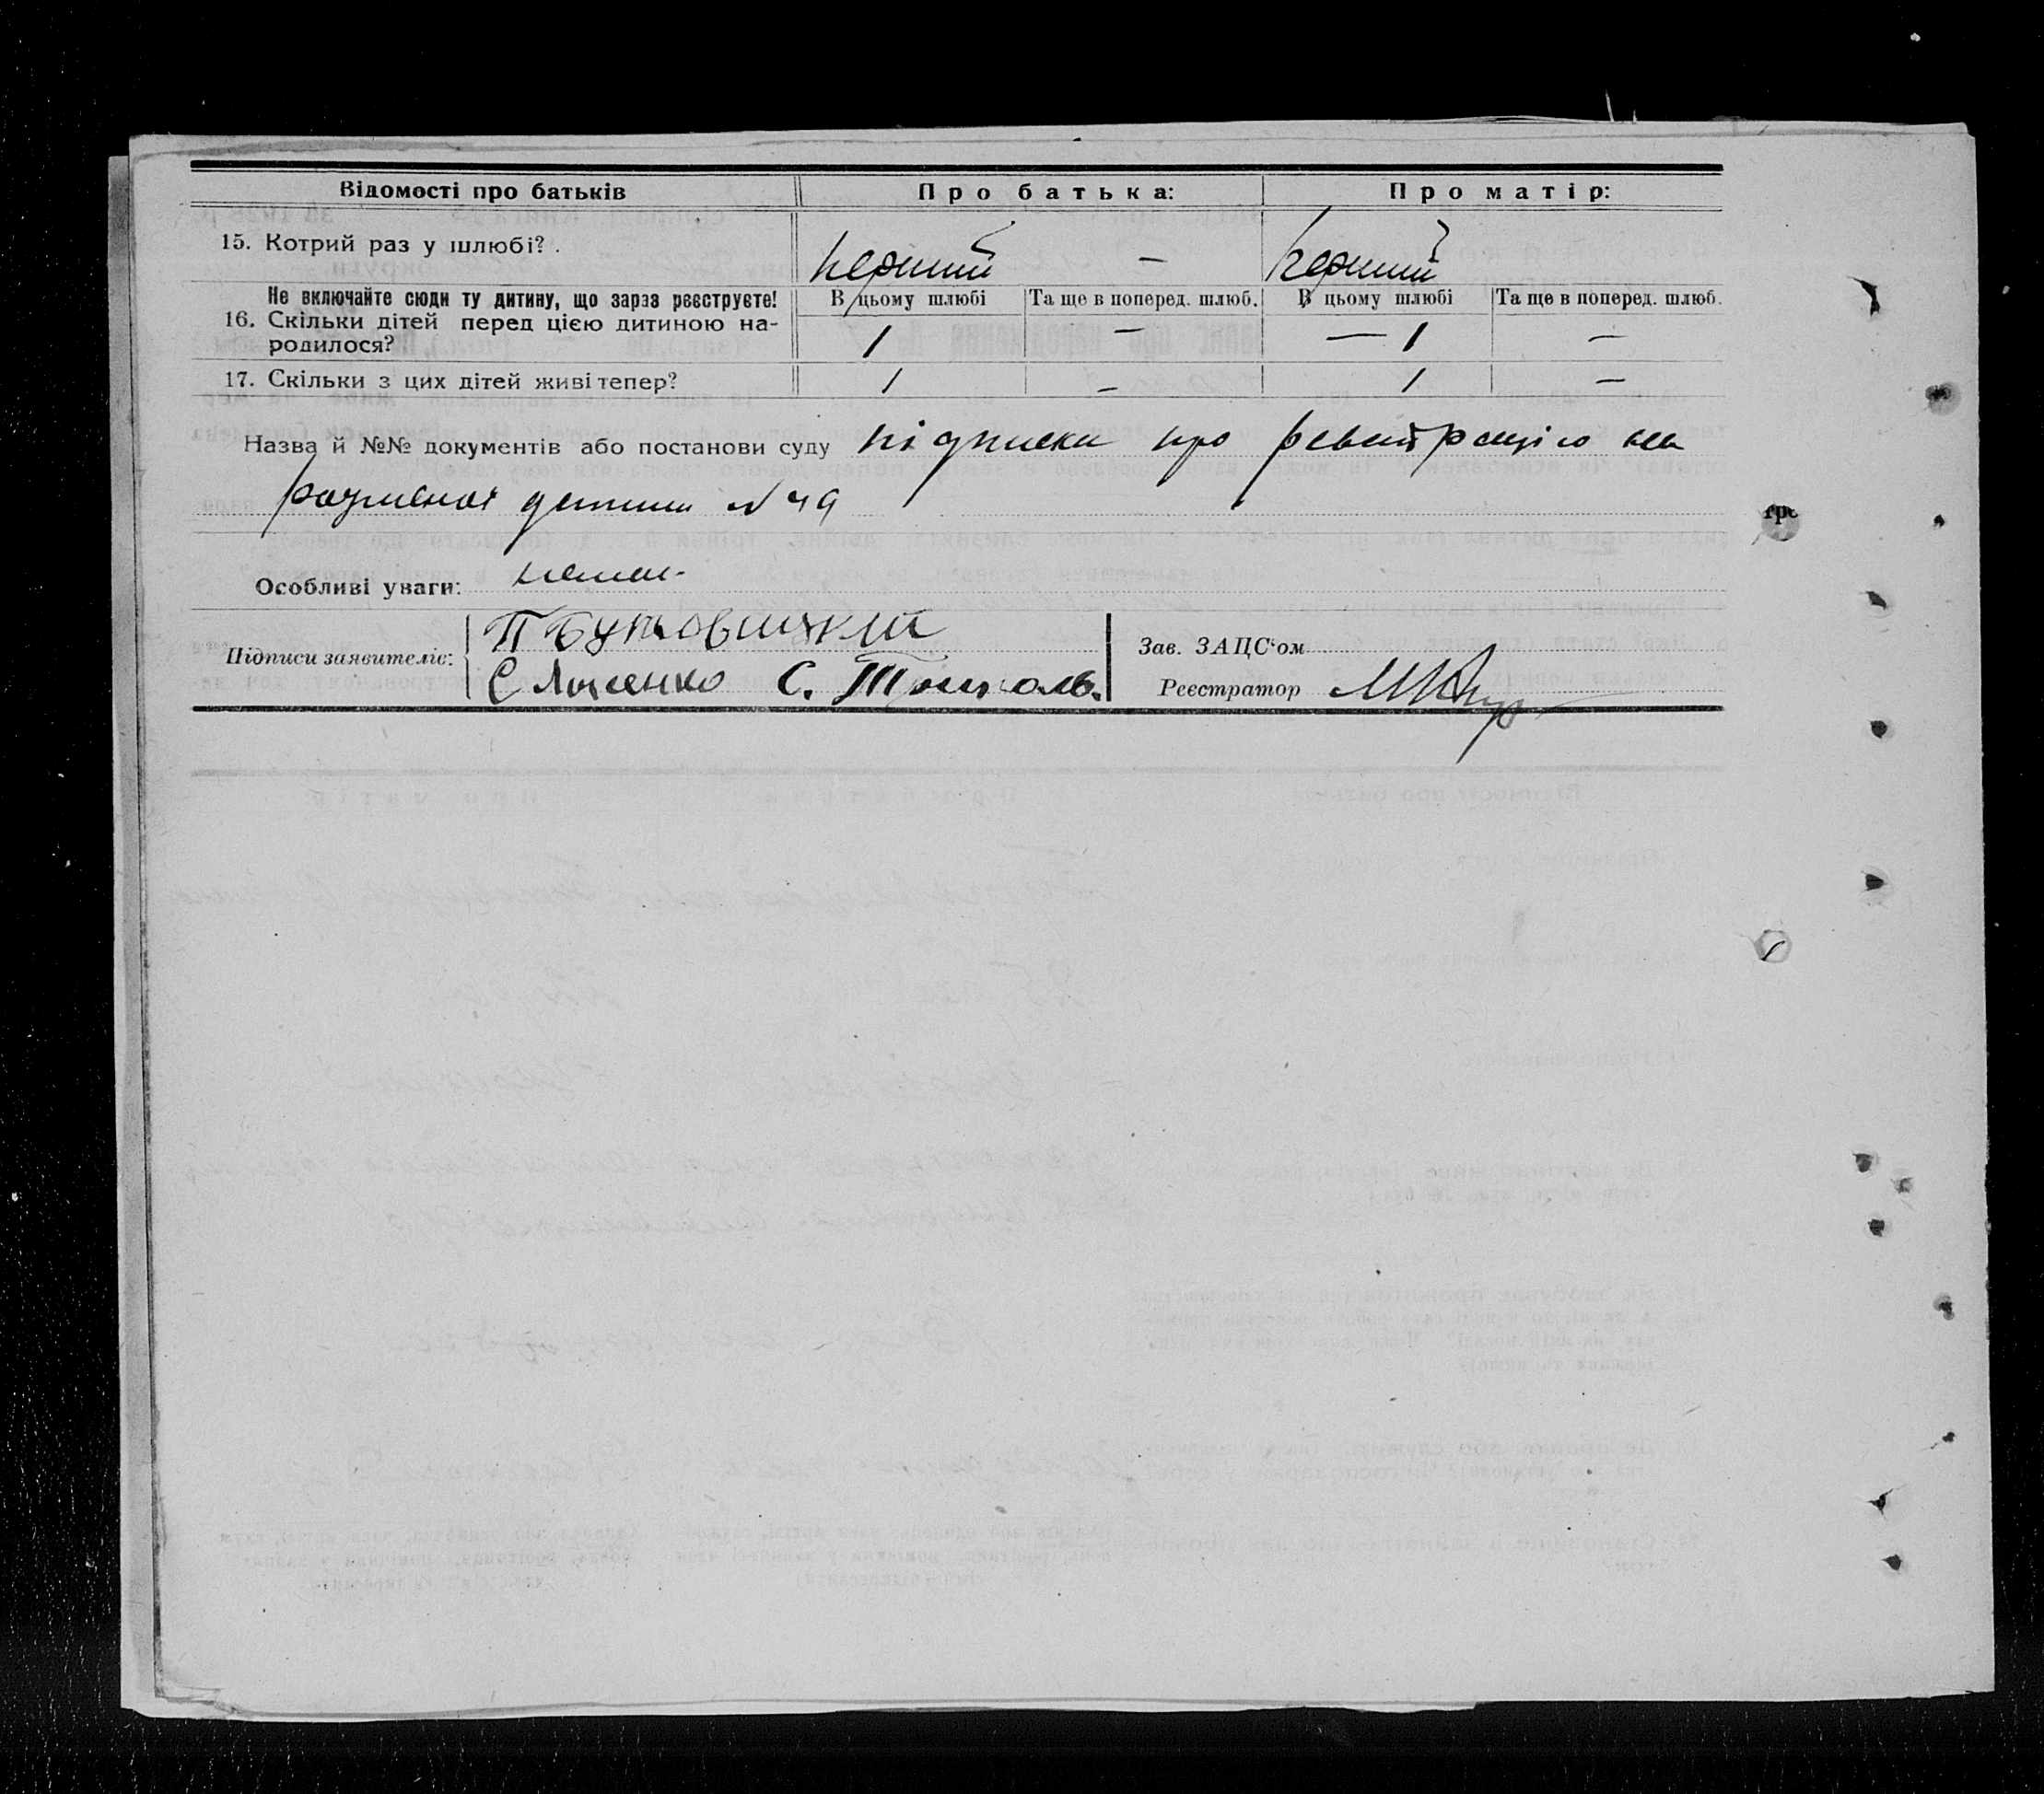 Відомості про батьків Про батька: Про матір:
15. Котрий раз у шлюбі? . перший — перший
Не включайте сюди ту дитину, що зараз реєструєте! В цьому шлюбі Та ще в поперед. шлюб. В цьому шлюбі Та ще в поперед. шлюб.
16. Скільки дітей перед цією дитиною на-
родилося? 1 — — 1 —
17. Скільки з цих дітей живі тепер? 1 — 1 —
Назва й №№ документів або постанови суду підписка про на
дитини N 49
Особливі уваги: немає
Підписи заявителів: П Бутковицкий
Є Лисенко С.
Зав. ЗАЦС'ом
Реєстратор